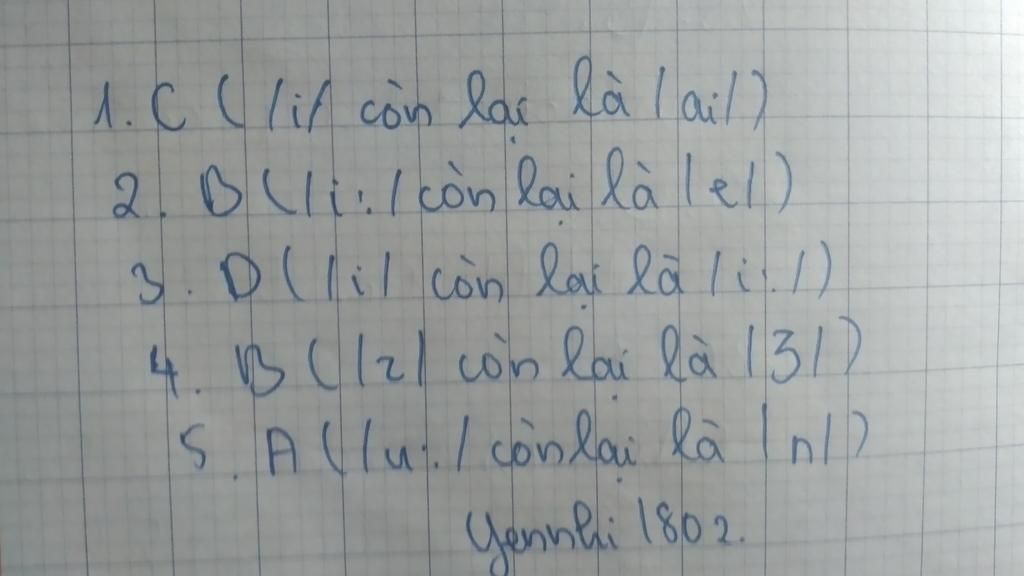 1. C ( /i/ còn lại là /ai/)
2. B (/i:/ còn lại là /e/)
3. D (/i/ còn lại là /i:/)
4. B (/z/ còn lại là /ʒ/)
5. A (/u:/ còn lại là /n/)
Yennhi 1802.